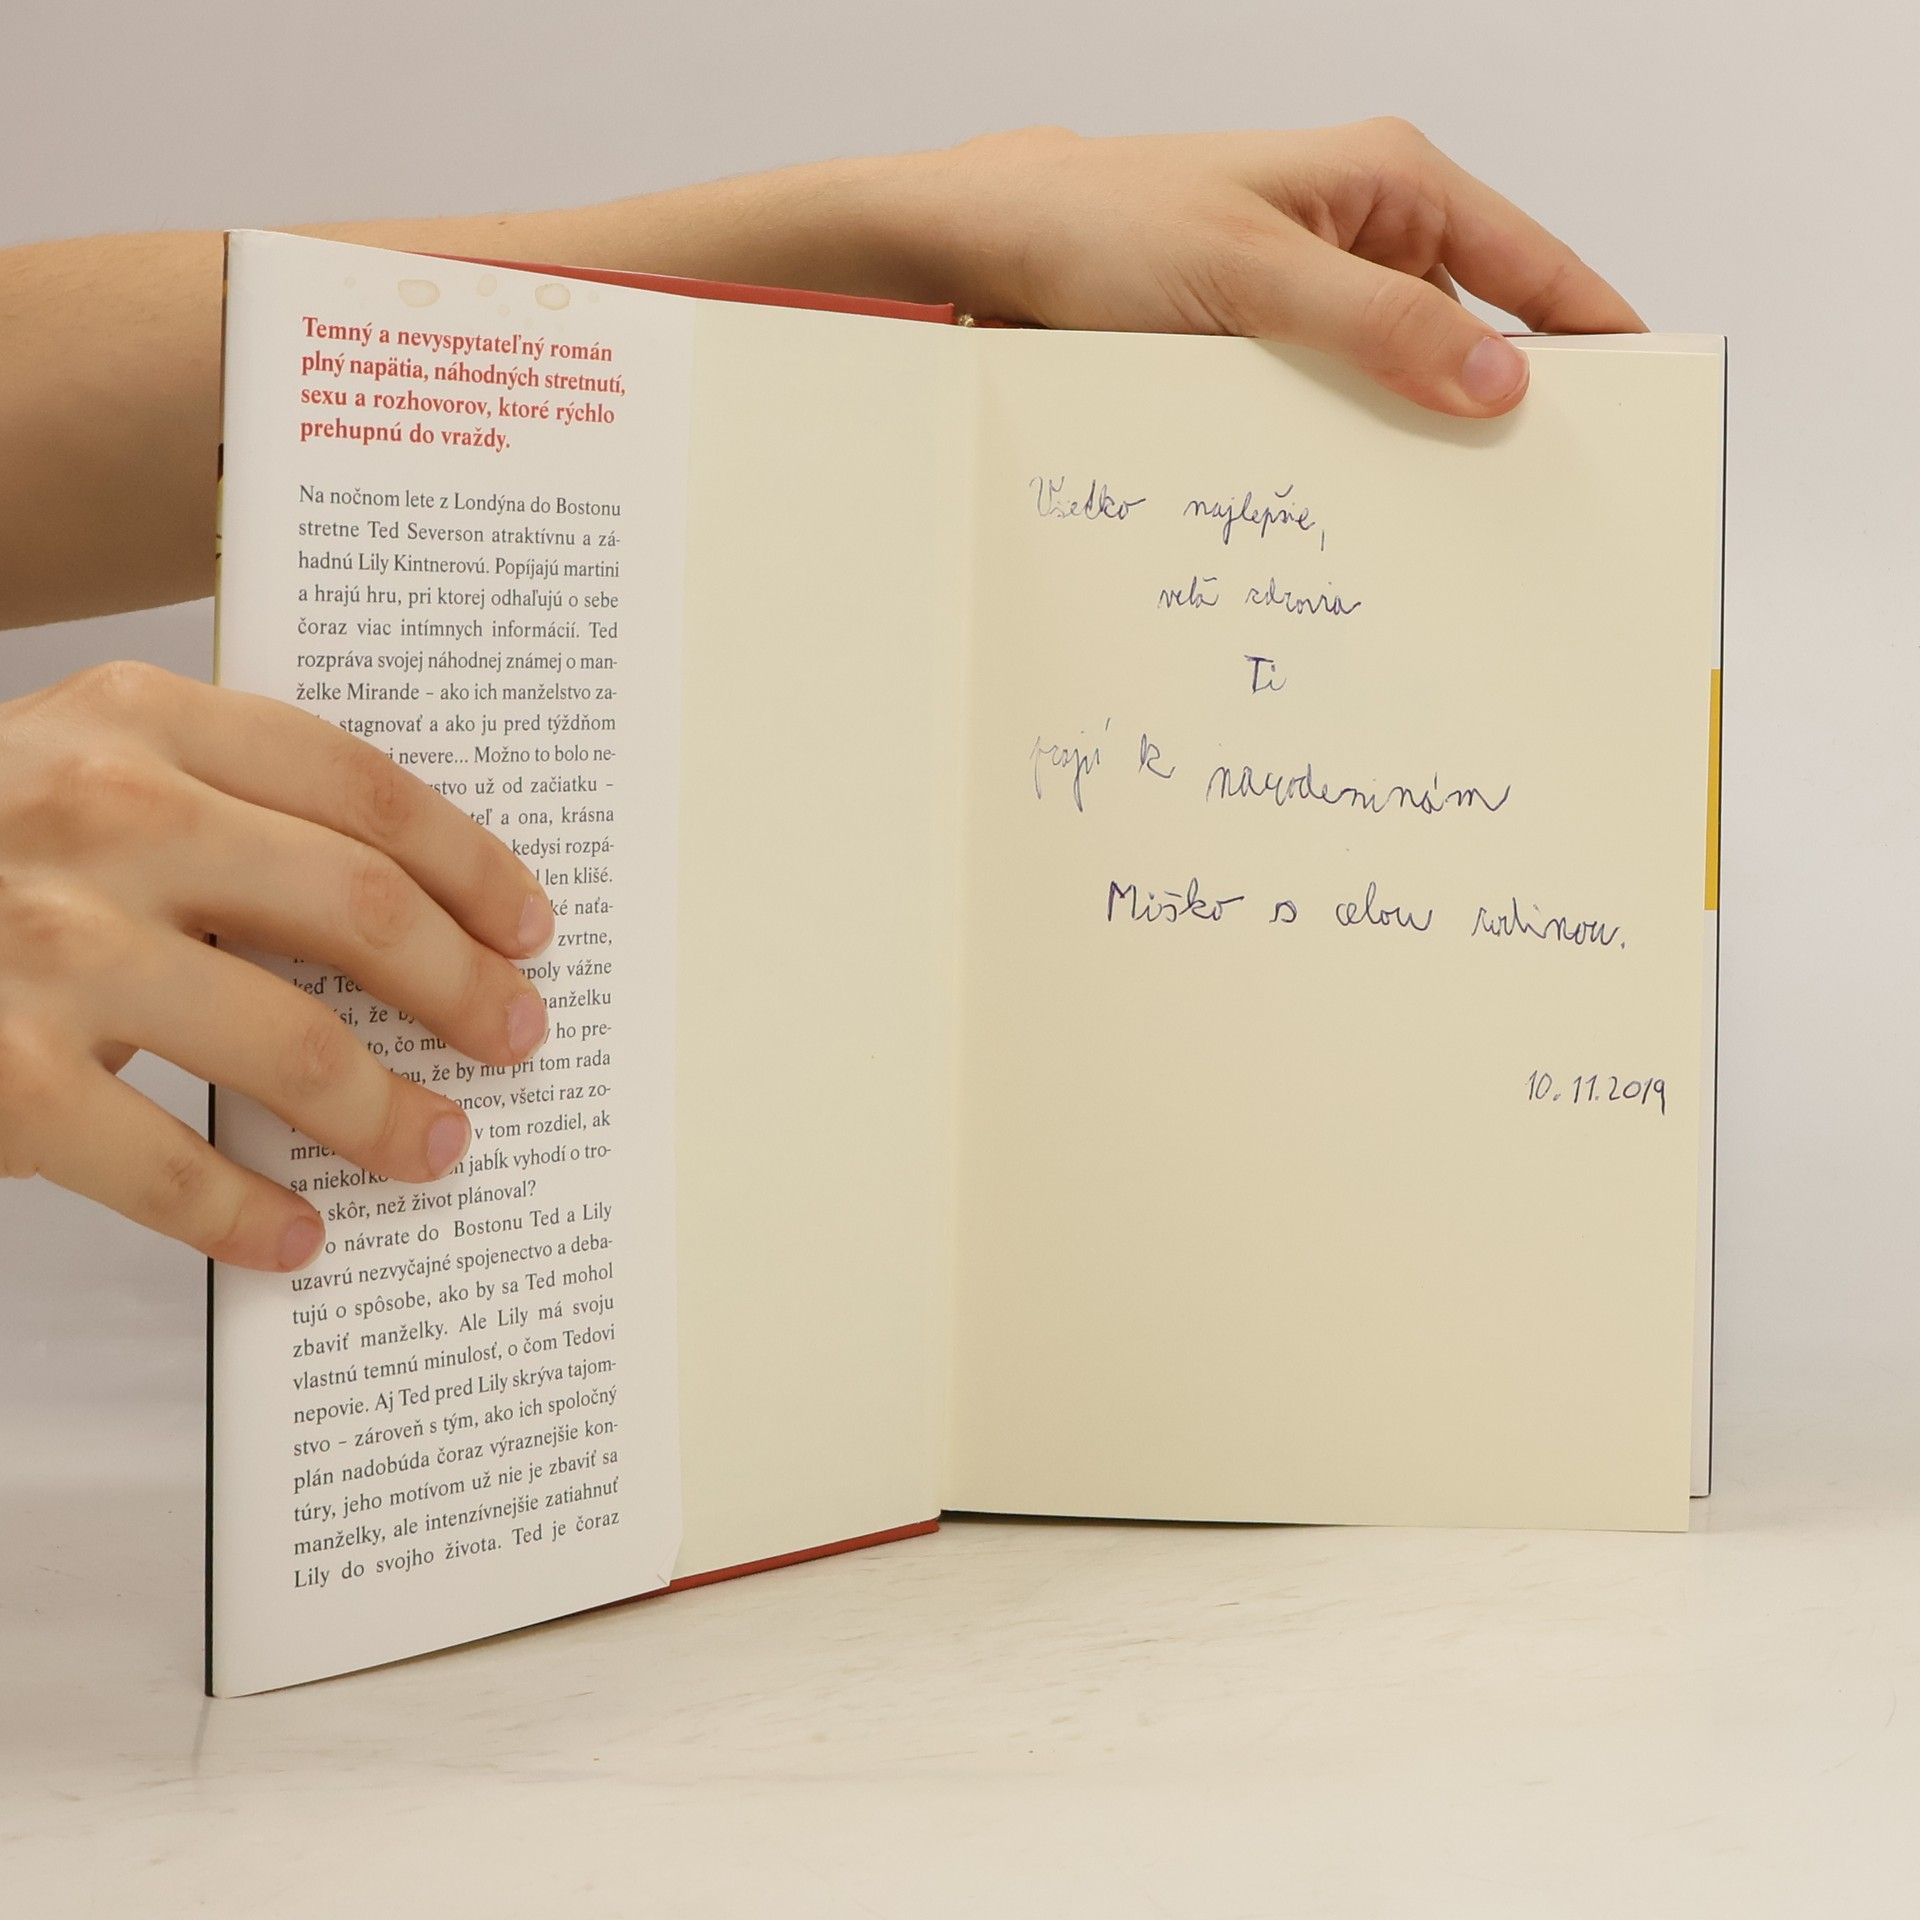 Temný a nevyspytateľný román
plný napätia, náhodných stretnutí,
sexu a rozhovorov, ktoré rýchlo
prehupnú do vraždy.
Na nočnom lete z Londýna do Bostonu
stretne Ted Severson atraktívnu a zá-
hadnú Lily Kintnerovú. Popíjajú martini
a hrajú hru, pri ktorej odhaľujú o sebe
čoraz viac intímnych informácií. Ted
rozpráva svojej náhodnej známej o man-
želke Mirande – ako ich manželstvo za-
stagnovať a ako ju pred týždňom
nevere... Možno to bolo ne-
už od začiatku –
a ona, krásna
kedysi rozpá-
len klišé.
naťa-
zvrtne,
vážne
keď
manželku
že
ho pre-
to, čo
že by mu pri tom rada
všetci raz zo-
v tom rozdiel, ak
sa jabĺk vyhodí o tro-
skôr, než život plánoval?
návrate do Bostonu Ted a Lily
uzavrú nezvyčajné spojenectvo a deba-
tujú o spôsobe, ako by sa Ted mohol
zbaviť manželky. Ale Lily má svoju
vlastnú temnú minulosť, o čom Tedovi
nepovie. Aj Ted pred Lily skrýva tajom-
stvo – zároveň s tým, ako ich spoločný
plán nadobúda čoraz výraznejšie kon-
túry, jeho motívom už nie je zbaviť sa
manželky, ale intenzívnejšie zatiahnuť
Lily do svojho života. Ted je čoraz
Všetko najlepšie,
velà zdravia
Ti
prajú k narodeninám
Miško s celou rodinou.
10.11.2019